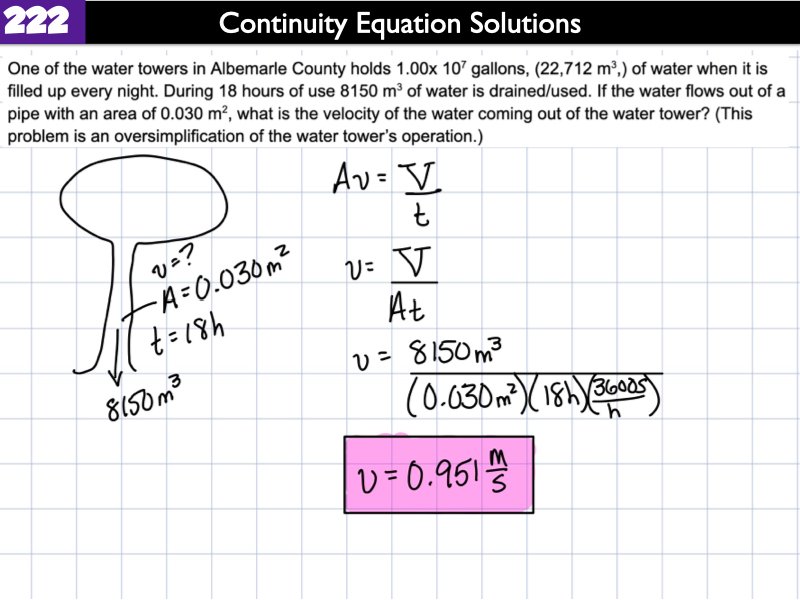 222
Continuity Equation Solutions
One of the water towers in Albemarle County holds 1.00x 10⁷ gallons, (22,712 m³,) of water when it is
filled up every night. During 18 hours of use 8150 m³ of water is drained/used. If the water flows out of a
pipe with an area of 0.030 m², what is the velocity of the water coming out of the water tower? (This
problem is an oversimplification of the water tower's operation.)
v=?
A=0.030m²
t=18h
8150m³
Av = V/t
v = V/At
v = 8150m³/(0.030m²)(18h)(3600s/h)
v=0.951 m/s